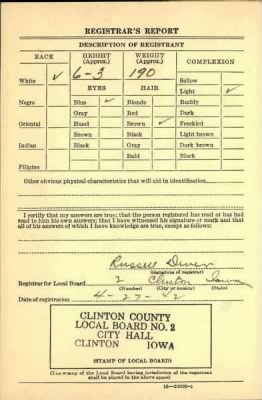 REGISTRAR'S REPORT
DESCRIPTION OF REGISTRANT
RACE HEIGHT (Approx.) WEIGHT (Approx.) COMPLEXION
White ✓ 6-3 190 Sallow
EYES HAIR Light ✓
Negro Blue ✓ Blonde Ruddy
Gray Red Dark
Oriental Hazel Brown ✓ Freckled
Brown Black Light brown
Indian Black Gray Dark brown
Bald Black
Filipino
Other obvious physical characteristics that will aid in identification
I certify that my answers are true; that the person registered has read or has had
read to him his own answers; that I have witnessed his signature or mark and that
all of his answers of which I have knowledge are true, except as follows:
Russell
(Signature of registrar)
Registrar for Local Board 2 Clinton Iowa
(Number) (City or county) (State)
Date of registration 4-27-42
CLINTON COUNTY
LOCAL BOARD NO. 2
CITY HALL
CLINTON IOWA
(STAMP OF LOCAL BOARD)
(The stamp of the Local Board having jurisdiction of the registrant
shall be placed in the above space)